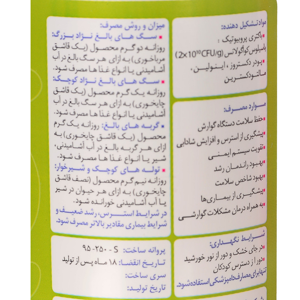 مواد تشکیل دهنده:
باکتری پروبیوتیک
باسیلوس کواگولانس (2×10¹⁰CFU/g)
پودر دکستروز ، اینولین،
مالتودکسترین
موارد مصرف:
حفظ سلامت دستگاه گوارش
پیشگیری از استرس و افزایش شادابی
تقویت سیستم ایمنی
بهبود راندمان رشد
بهبود شاخص سلامت
پیشگیری از بیماری‌ها
به همراه درمان مشکلات گوارشی
شرایط نگهداری:
در جای خشک و دور از نور خورشید
دور از دسترس کودکان
تنها برای مصارف دامپزشکی استفاده شود.
میزان و روش مصرف:
سگ های بالغ نژاد بزرگ:
روزانه دو گرم محصول (یک قاشق
مرباخوری) به ازای هر سگ بالغ در آب
آشامیدنی یا انواع غذا ها مصرف شود.
سگ های بالغ نژاد کوچک:
روزانه یک گرم محصول (یک قاشق
چایخوری) به ازای هر سگ بالغ در آب
آشامیدنی یا انواع غذا ها مصرف شود.
گربه های بالغ: روزانه یک گرم
محصول (یک قاشق چایخوری) به
ازای هر گربه بالغ در آب آشامیدنی،
شیر یا انواع غذا ها مصرف شود.
توله های کوچک و شیرخوار:
روزانه نیم گرم محصول (نصف قاشق
چایخوری) به ازای هر حیوان در شیر
یا آب آشامیدنی خورانده شود.
در شرایط استرس، رشد ضعیف و
شرایط بیماری مقادیر بالاتر مصرف شود.
پروانه ساخت: S-۹۵-۲۵۰۰
تاریخ انقضا: ۱۸ ماه پس از تولید
سری ساخت:
تاریخ تولید: